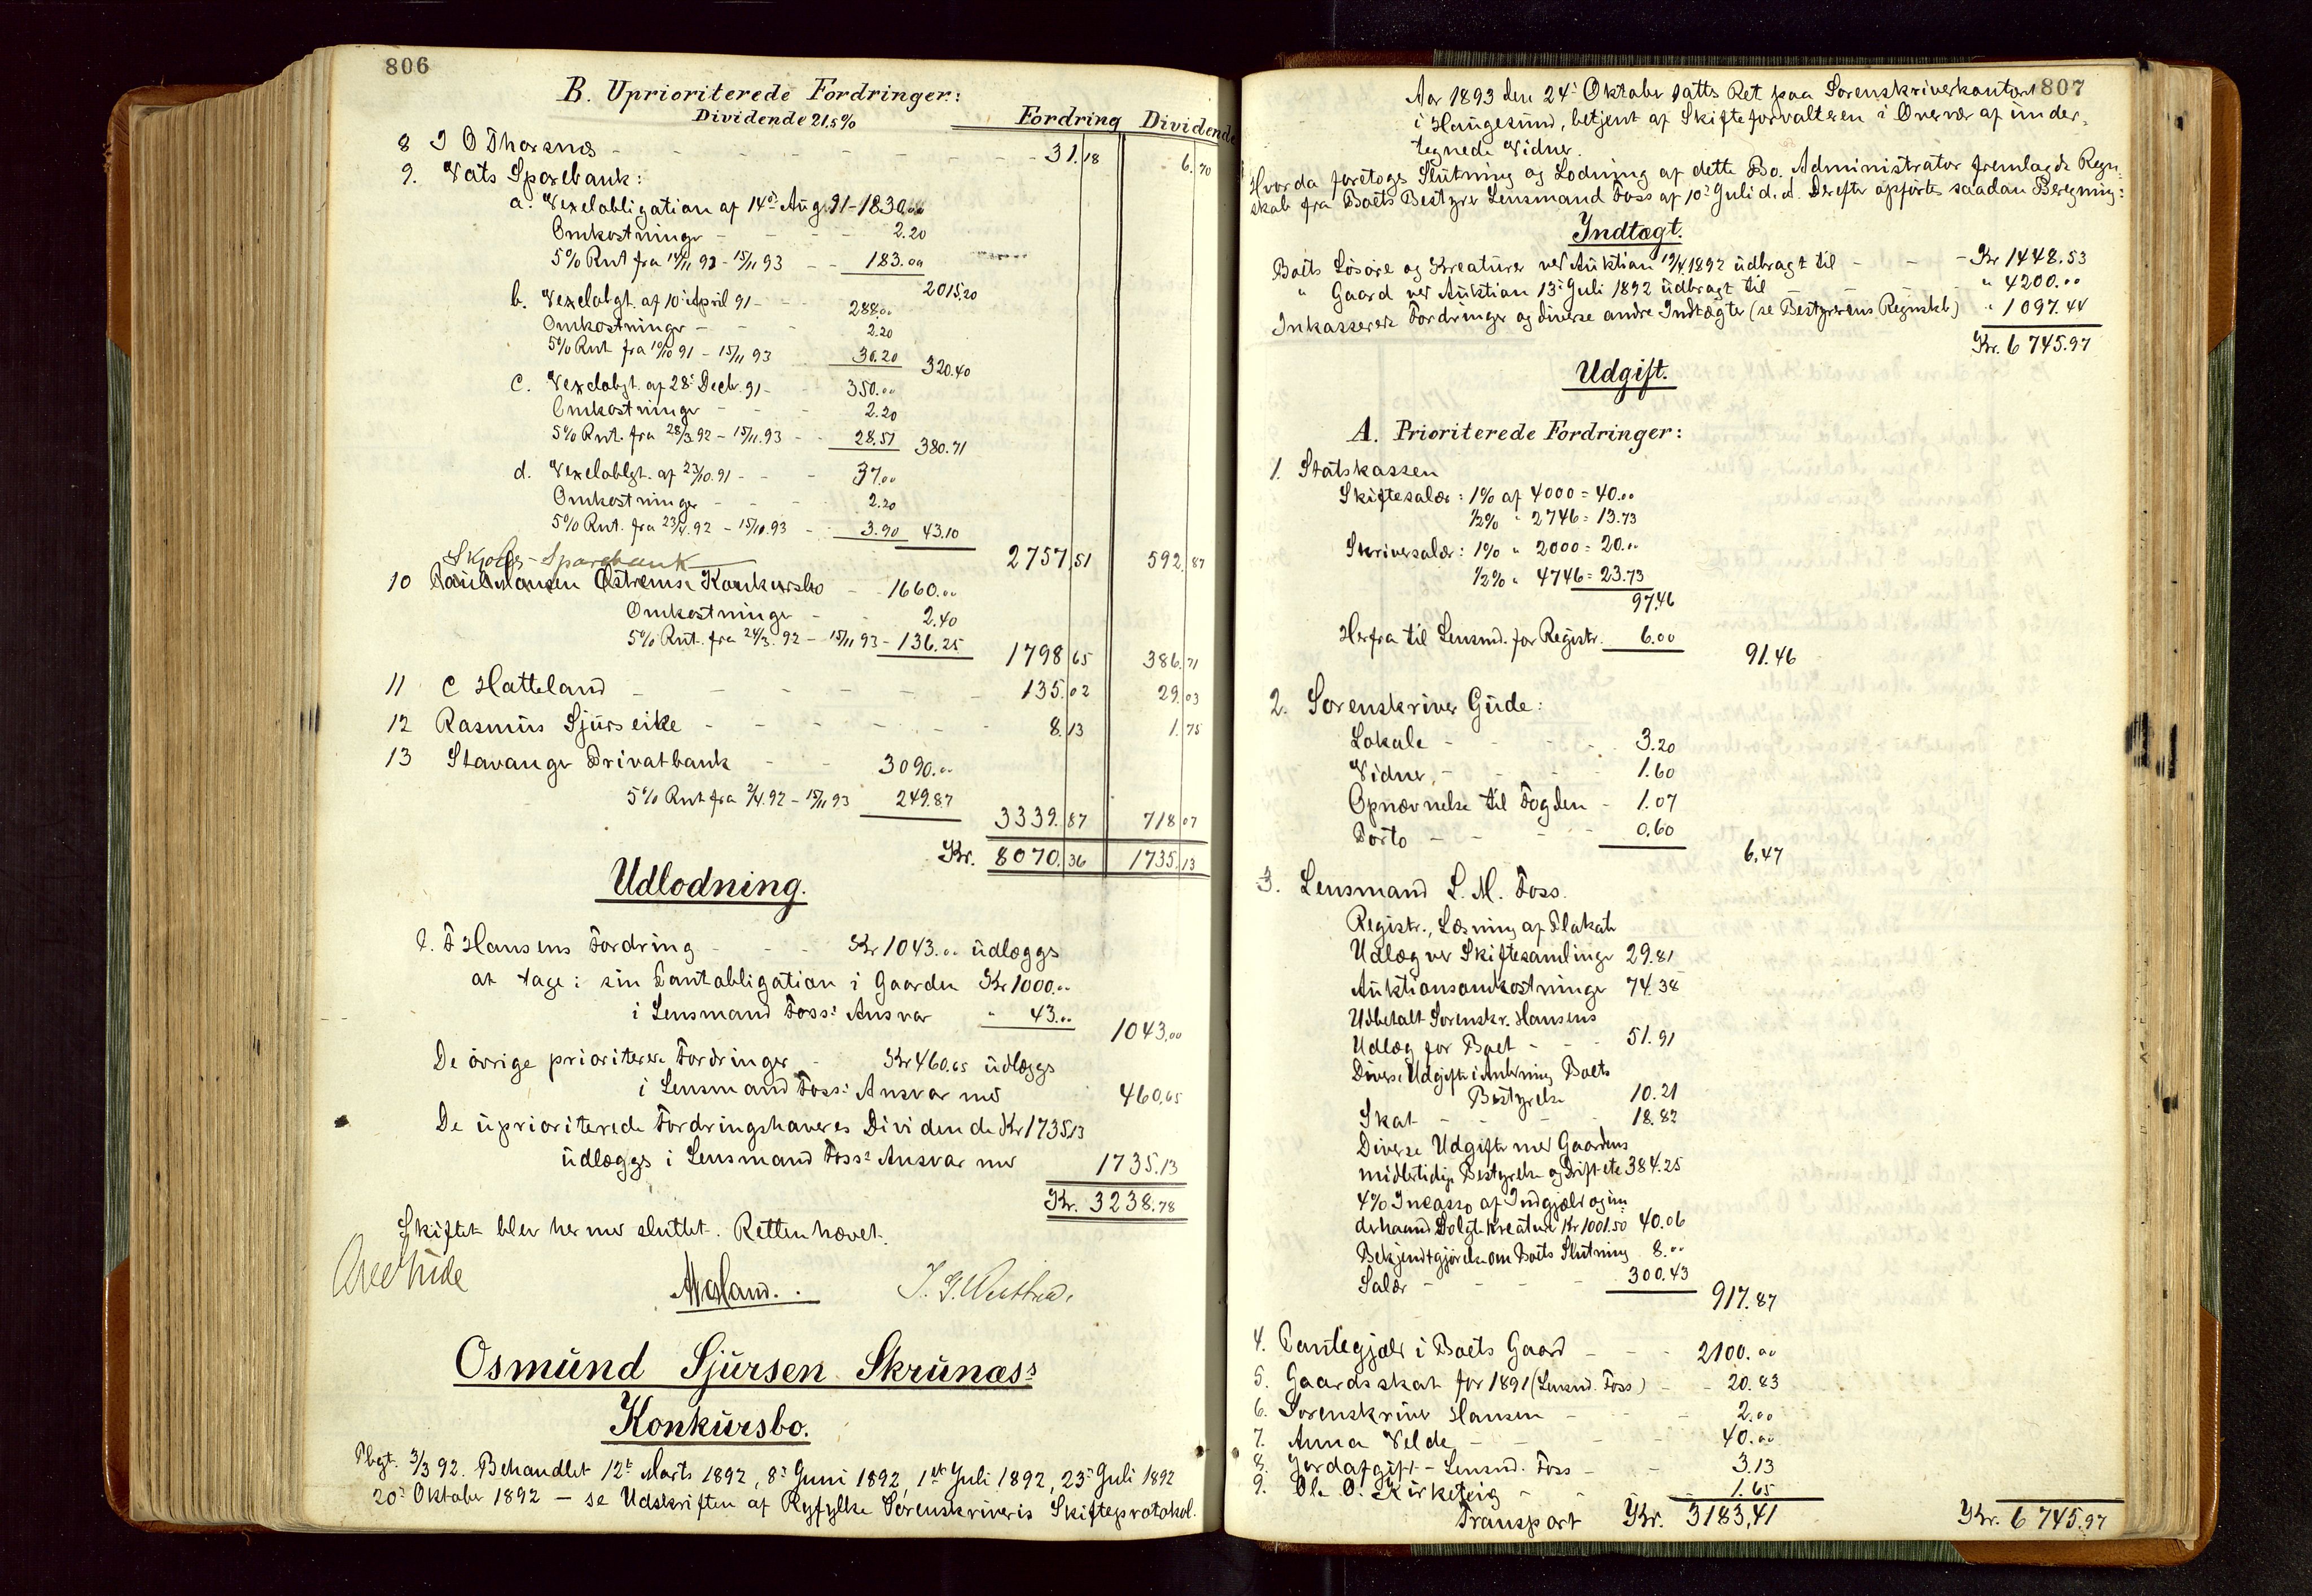 806
B. Uprioriterede Fordringer:
Dividende 21,5% Fordring Dividende
8 I O Thorsnæs - 31.18 6.70
9. Vats Sparebank:
a. Vexelobligation af 14de Aug. 91 - 1830.00
Omkostninger - 2.20
5% Rent. fra - 15/11 93 - 183.00
2015.20
b. Vexelobgt. af 10de April 91 - 288.00
Omkostninger - 2.20
5% Rnt. fra 10/10 91 - 15/11 93 30.20 320.40
c. Vexelobgt. af 28de Decbr. 91 - 350.00
Omkostninger - 2.20
5% Rnt. fra 28/3.92 - 15/11.93 - 28.51 380.71
d. Vexeloblgt. af 23/10.91 - 37.00
Omkostninger - 2.20
5% Rnt. fra 23/4.92 - 15/11.93 - 3.90 43.10
Skjolds - Sparebank 2757.51 592.87
10 Østremsa Konkursbo - 1660.00
Omkostninger - 2.40
5% Rnt. fra 24/3.92 - 15/11 93 - 136.25
1798.65 386.71
11 C Hatteland - 135.02 29.03
12 Rasmus Sjurseike - 8.13 1.75
13 Stavanger Privatbank - 3090.00
5% Rnt fra 2/4.92 - 15/11 93 249.87
3339.87 718.07
Kr. 8070.36 1735.13
Udlodning.
P. T Hansens Fordring - Kr 1043.00 udlægges
at tage: sin Pantobligation i Gaarden Kr 1000.00
i Lensmand Foss's Ansvar " 43.00
1043.00
De övrige prioriterede Fordringer - Kr 460.65 udlægges
i Lensmand Foss's Ansvar med 460.65
De uprioriterede Fordringshaveres Dividende Kr 1735.13
udlægges i Lensmand Foss's Ansvar med 1735.13
Kr. 3238.78
Skiftet blev hermed sluttet. Retten hævet.
Ove Gude
Osmund Sjursen Skrunæs's
Konkursbo.
3/3 92. Behandlet 12te Marts 1892, 8de Juni 1892, 1ste Juli 1892, 23de Juli 1892
20de Oktober 1892 - se Udskriften af Ryfylke Sorenskriveris Skifteprotokol.
807
Aar 1893 den 24de Oktober sattes Ret paa Sorenskriverkontoret
i Haugesund, betjent af Skifteforvalteren i Overvær af under-
tegnede Vidner.
Hvorda foretoges Slutning og Lodning af dette Bo. Administrator fremlagde Regn-
skab fra Boets Bestyrer Lensmand Foss af 10de Juli d. A. Derefter opførtes saadan Beregning:
Indtægt.
Boets Løsøre og Kreaturer ved Auktion 19/4 1892 udbragt til - - - Kr 1448.53
" Gaard ved Auktion 13de Juli 1892 udbragt til - " 4200.00
Inkasserede Fordringer og diverse andre Indtægter (se Bestyrerens Regnskab) " 1097.44
Kr. 6745.97
Udgift.
A. Prioriterede Fordringer:
1. Statskassen
Skiftesalær: 1% af 4000 = 40.00
1/2% " 2746 = 13.73
Skriversalær: 1% " 2000 = 20.00
1/2% " 4746 = 23.73
97.46
Herfra til Lensmd. for Registr. 6.00
91.46
2. Sorenskriver Gude:
Lokale - 3.20
Vidner, - 1.60
Opnævnelse til Fogden - 1.07
Porto - 0.60
6.47
3. Lensmand L. M. Foss.
Registr., Læsning af Plakat
Udlæg ved Skiftesamlinger 29.81
Auktionsomkostninger 74.38
Udbetalt Sorenskr. Hansens
Udlæg for Boet - 51.91
Diverse Udgifter i Anledning Boets
Bestyrelse 10.21
Skat - 18.82
Diverse Udgifter med Gaardens
midlertidige Bestyrelse og Drift etc 384.25
4% Inkasso af Indgjæld og un-
derhaand Solgte Kreaturer Kr 1001.50 40.06
Bekjendtgjørelse om Boets Slutning 8.00
Salær - 300.43
917.87
4. Pantegjæld i Boets Gaard - 2100.00
5. Gaardsskat for 1891 (Lensmd. Foss) - 20.83
6. Sorenskriver Hansen - 2.00
7. Anna Velde - 40.00
8. Jordafgift - Lensmd. Foss - 3.13
9. Ole O. Kirketeig - 1.65
Transport Kr. 3183.41 Kr. 6745.97